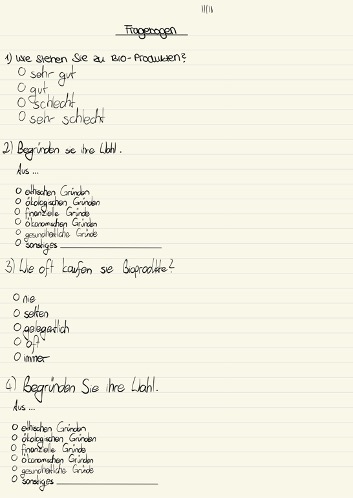 Fragebogen
1) Wie stehen Sie zu Bio-Produkten?
O sehr gut
O gut
O schlecht
O sehr schlecht
2) Begründen sie ihre Wahl.
Aus ...
O ethischen Gründen
O ökologischen Gründen
O finanzielle Gründe
O ökonomischen Gründen
O gesundheitliche Gründe
O sonstiges
3) Wie oft kaufen sie Bioprodukte?
O nie
O selten
O gelegentlich
O oft
O immer
4) Begründen Sie ihre Wahl.
Aus ...
O ethischen Gründen
O ökologischen Gründen
O finanzielle Gründe
O ökonomischen Gründen
O gesundheitliche Gründe
O sonstiges